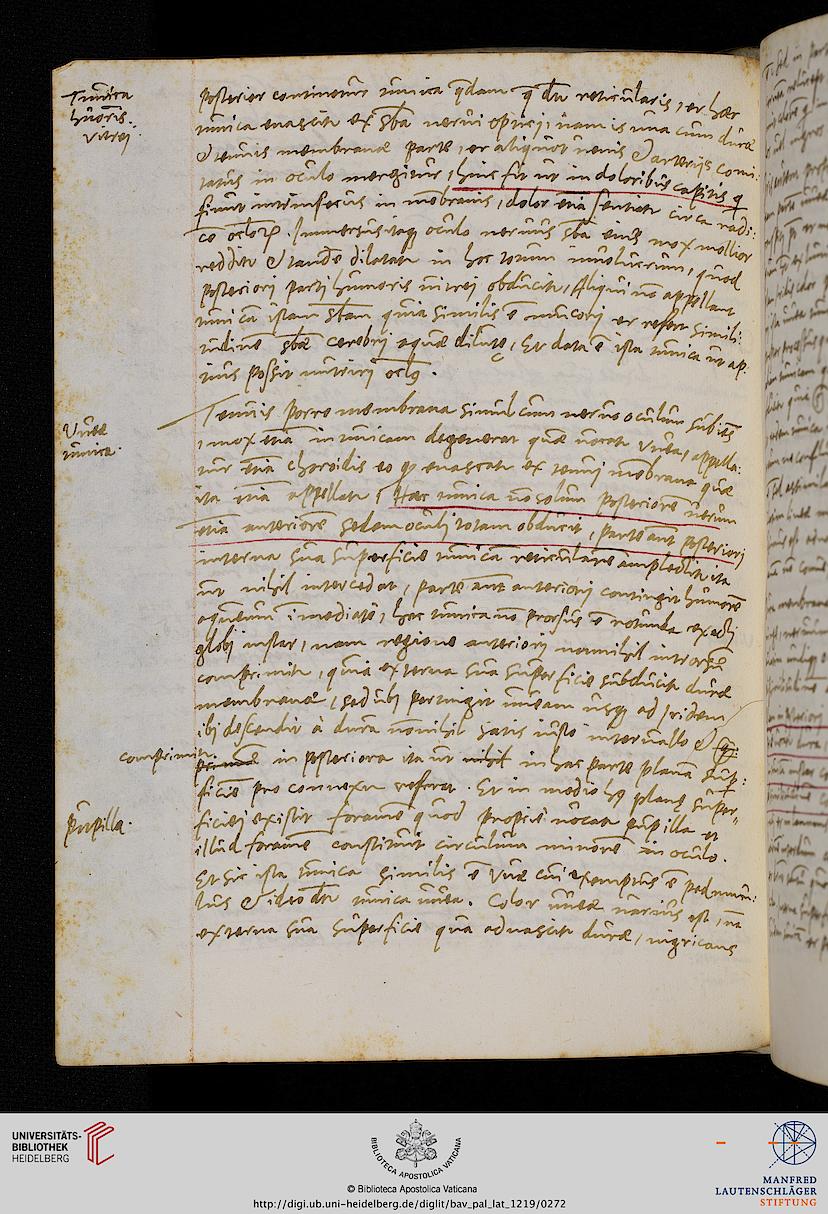 Tunica
hūoris.
vitrej.
posterior continetur tunica qdam q dr reticularis, et haec
tunica enascit ex sba nervi optici, nam is una cum dura
& tenuis membranae parte, et aliquot venis & arterijs comi:
tatus in oculo mergitur, hinc fit ut in doloribus capitis q
fiunt intrinsecus in mebranis, dolor etiā sentiat circa radi:
co oclorū. Immersus itaq oculo nervus sba eius mox mollior
reddit & tandē dilatat in hoc totum involucrum, quod
posteriori partj humoris vitrej obducit, Aliqui nō appellant
tunicā istam sbam quia similis ē mucorj et refert simili:
tudinē sbae cerebrj aquae dilutę, Et data ē ista tunica ut ap:
tius possit nutrirj ocls.
Uveae
tunica.
Tenuis porro membrana simul cum nervo oculum subiēs
, mox etiā in tunicam degenerat quae vocat uvea, appella:
tur etiā choroidis eo q enascat ex tenuj mebrana quae
ita etiā appellat, Haec tunica nō solum posteriorē verum
etiā anteriorē sedem oculj totam obducit, parte aut posteriorj
interna sua superficie tunicā reticularē amplectit ita
ut nihil intercedat, parte aut anteriorj contingit humorē
aqueum imediatē, haec tunica nō prorsus ē rotunda exactj
globj instar, nam regione anteriorj nonnihil introrsū
comprimit, quia externa sua superficie subducit durae
membranae, sed ubj pertingit uveam usq ad iridem
ibj descendit à dura nonnihil satis iusto intervallo &
comprimit
in posteriora ita ut nihil in hac parte planā sup:
ficiē pro connexa referat. Et in medio hs planę super,,
ficiej existit foramē quod proprie vocat pupilla et
pupilla.
illud foramē constituit circulum minorē in oculo.
Et sic ista tunica similis ē uvae cui exemptus ē peduncu:
lus & ideo dr tunica uvea. Color uveae varius est, nā
externa sua superficie qua advascit durae, nigricans
UNIVERSITÄTS-
BIBLIOTHEK
HEIDELBERG
BIBLIOTECA APOSTOLICA VATICANA
© Biblioteca Apostolica Vaticana
http://digi.ub.uni-heidelberg.de/diglit/bav_pal_lat_1219/0272
MANFRED
LAUTENSCHLÄGER
STIFTUNG